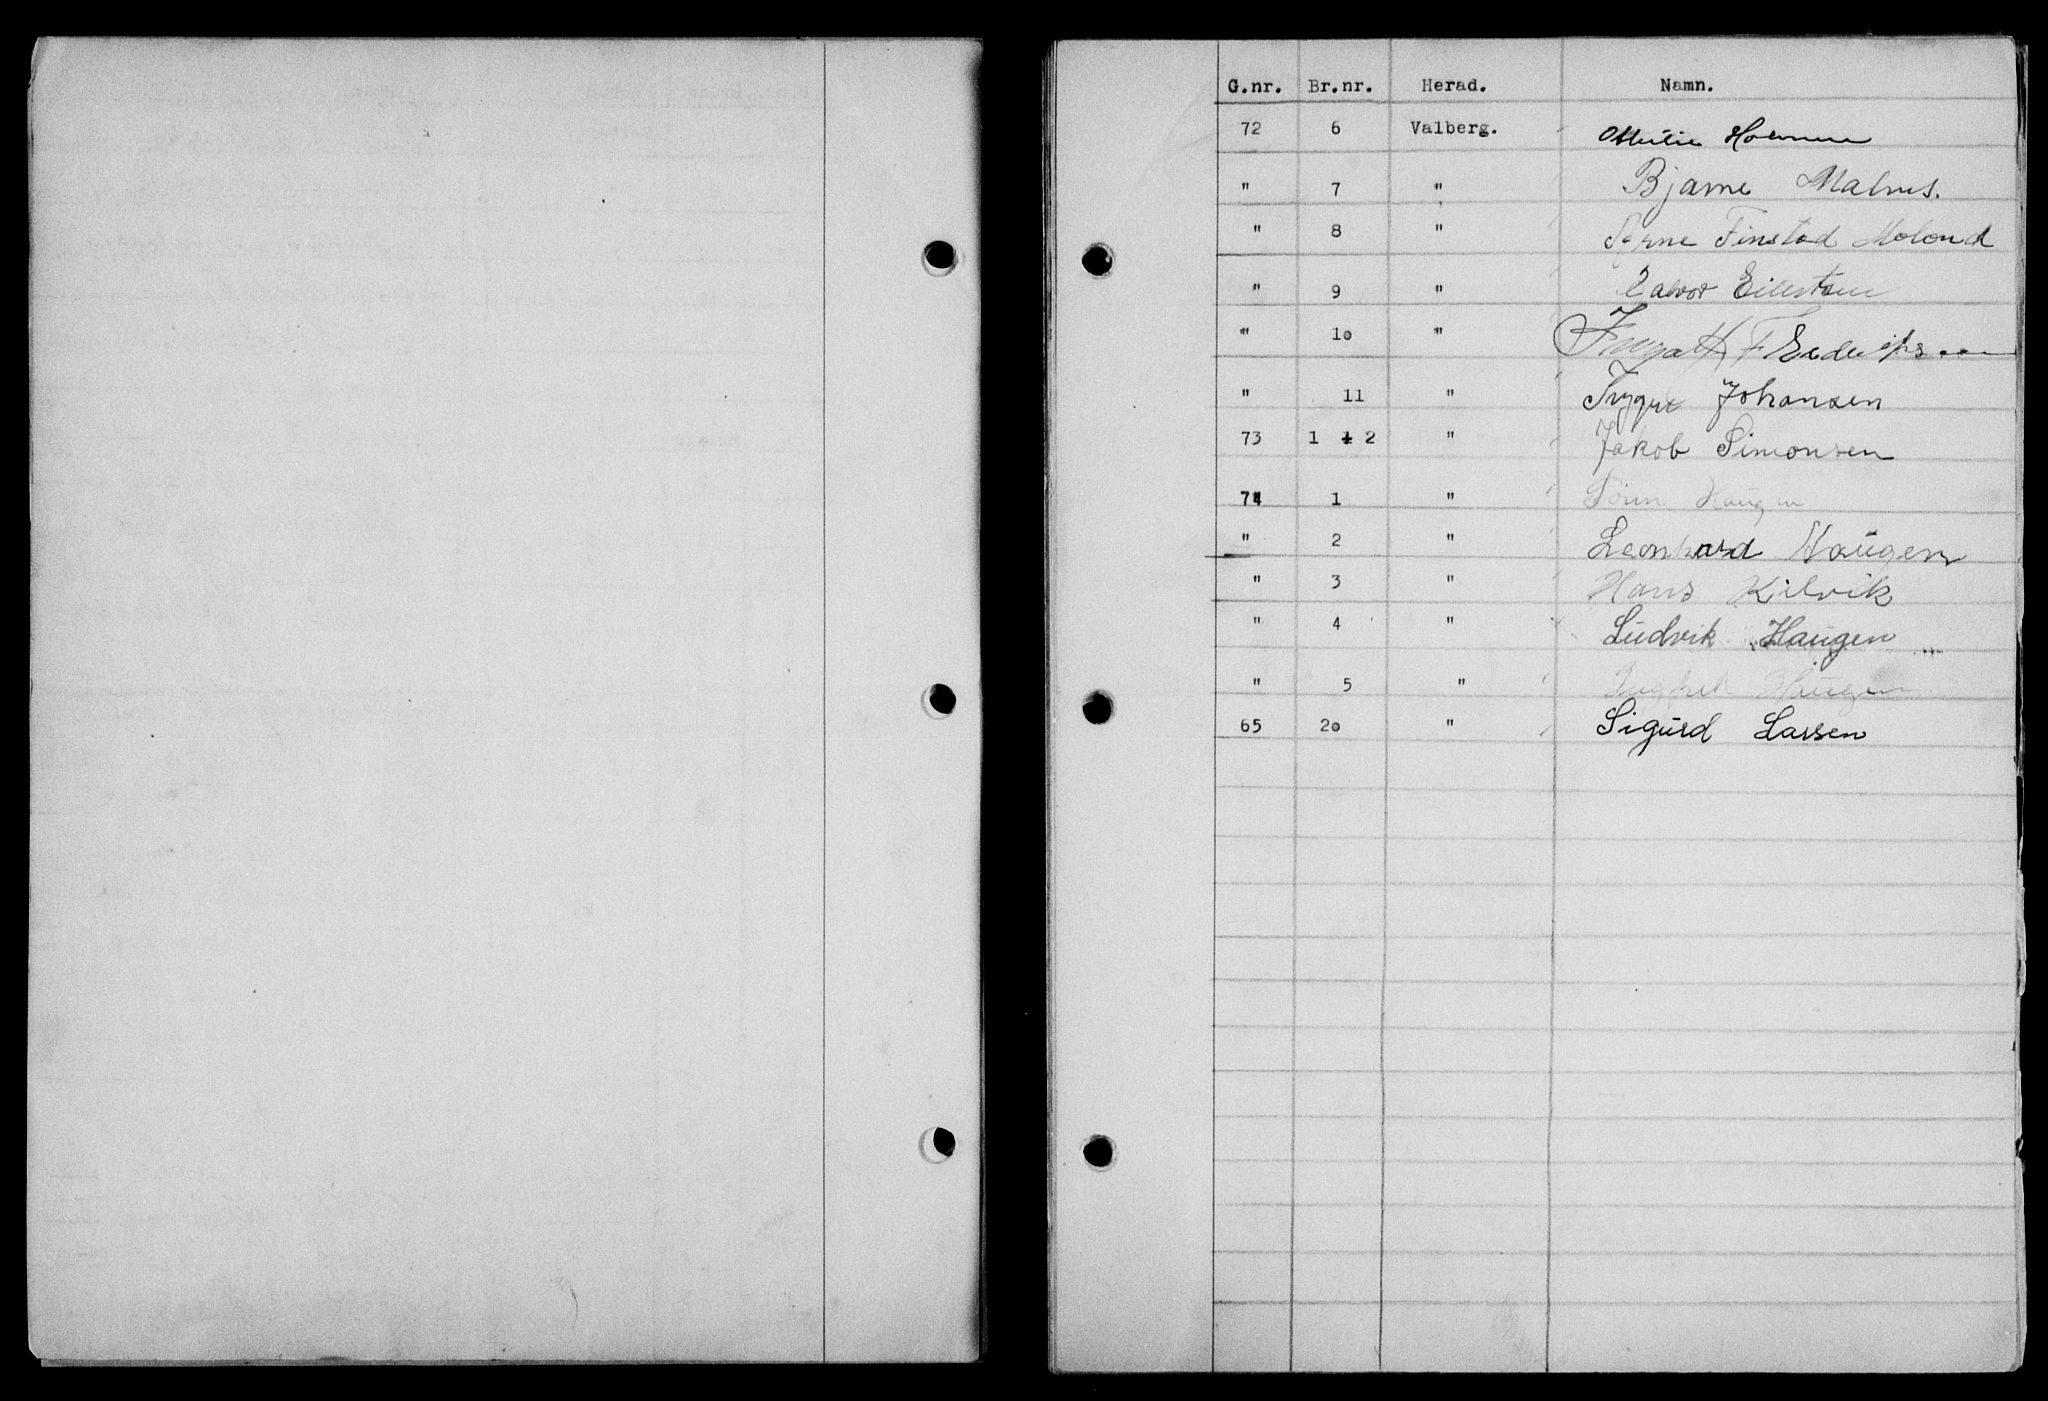 G.nr. Br.nr. Herad. Namn.
72 6 Valberg.
" 7 " Bjarne Malnes.
" 8 " Finstad Moland
" 9 " Halvor Eilertsen
" 10 "
" 11 " Trygve Johansen
73 1 + 2 " Jakob Simonsen
74 1 " Haugen
" 2 " Leonhard Haugen
" 3 " Hans Kilvik
" 4 " Ludvik Haugen
" 5 " Haugen
65 20 " Sigurd Larsen